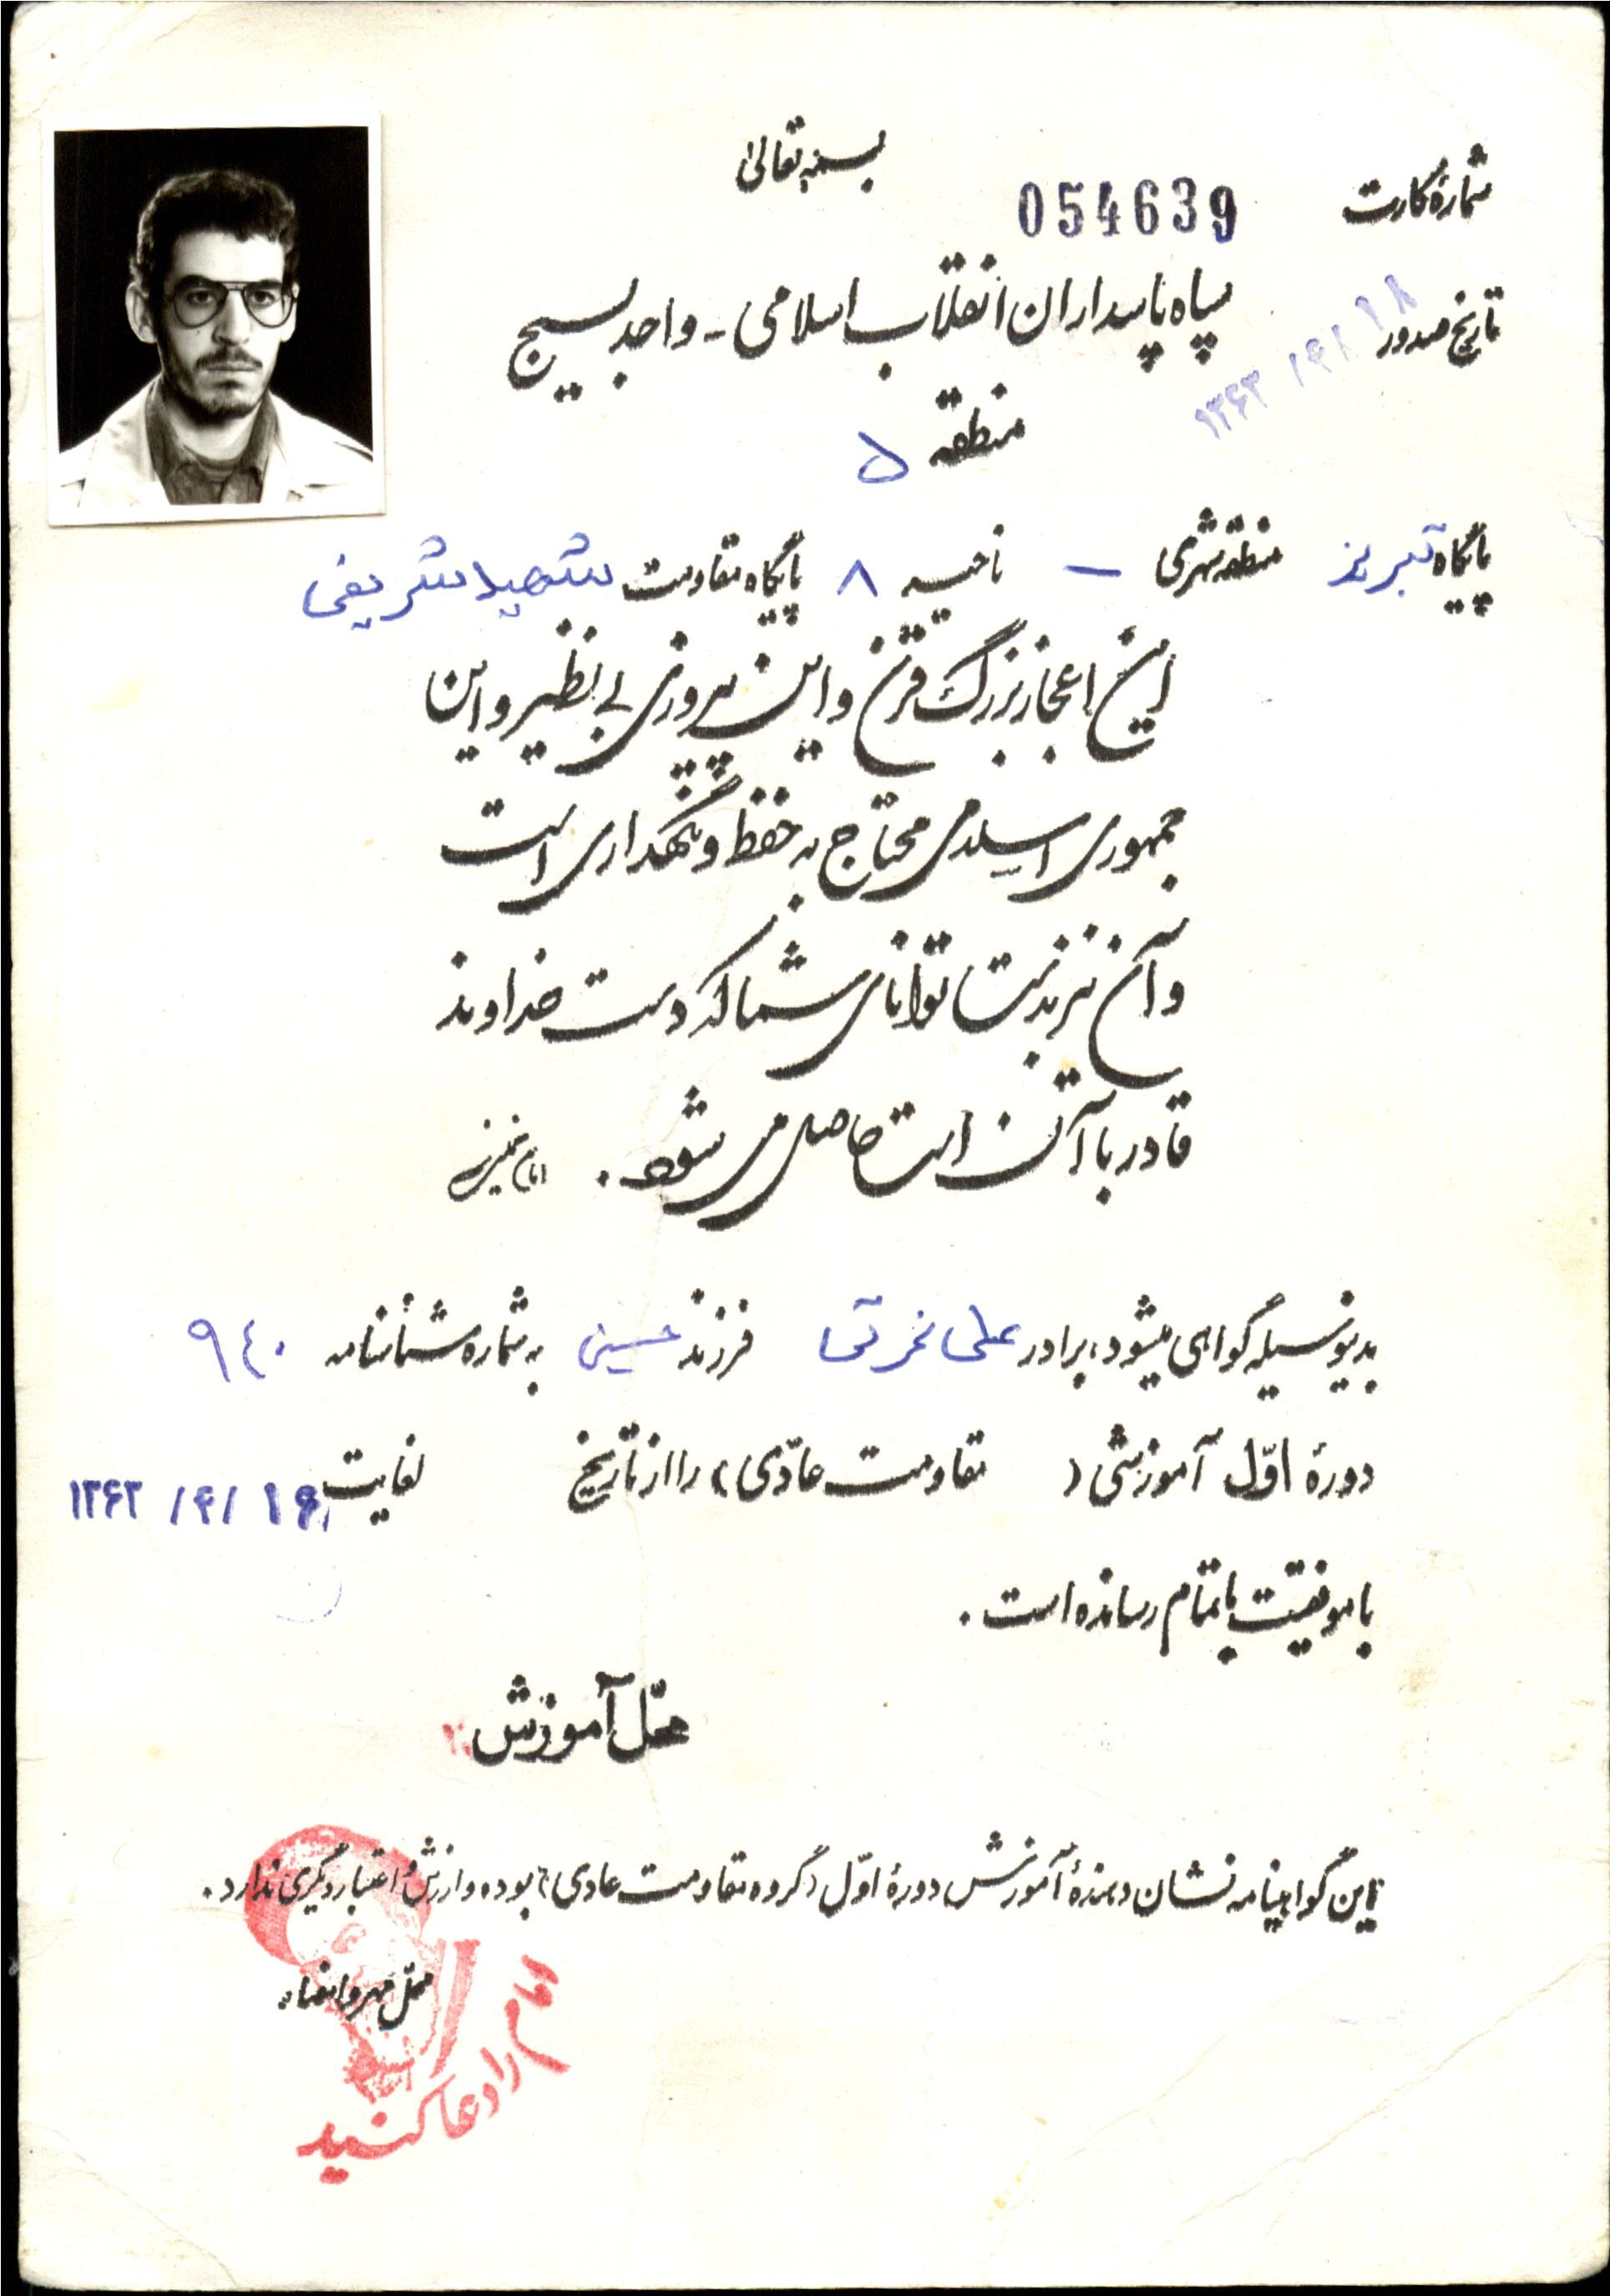 بسمه تعالی
شمارهٔ کارت 054639
سپاه پاسداران انقلاب اسلامی - واحد بسیج
تاریخ صدور
منطقه ۵
پایگاه تبریز منطقه شهری - ناحیه ۸ پایگاه مقاومت شهید شریفی
این اعجاز بزرگ قرن و این پیروزی بی نظیر و این
جمهوری اسلامی محتاج به حفظ و نگهداری است
و آن نیز بدست توانای شما که دست خداوند
قادر با آن است حاصل می شود. امام خمینی
بدینوسیله گواهی میشود، برادر علی فرزند حسین به شماره شناسنامه ۹٤۰
دورهٔ اوّل آموزشی ( مقاومت عادّی) را از تاریخ لغایت
با موفقیّت باتمام رسانده است.
محّل آموزش
این گواهینامه نشان دهندهٔ آموزش دورهٔ اوّل (گروه مقاومت عادی) بوده و ارزش و اعتبار دیگری ندارد.
محّل مهر و امضاء
امام را دعا کنید